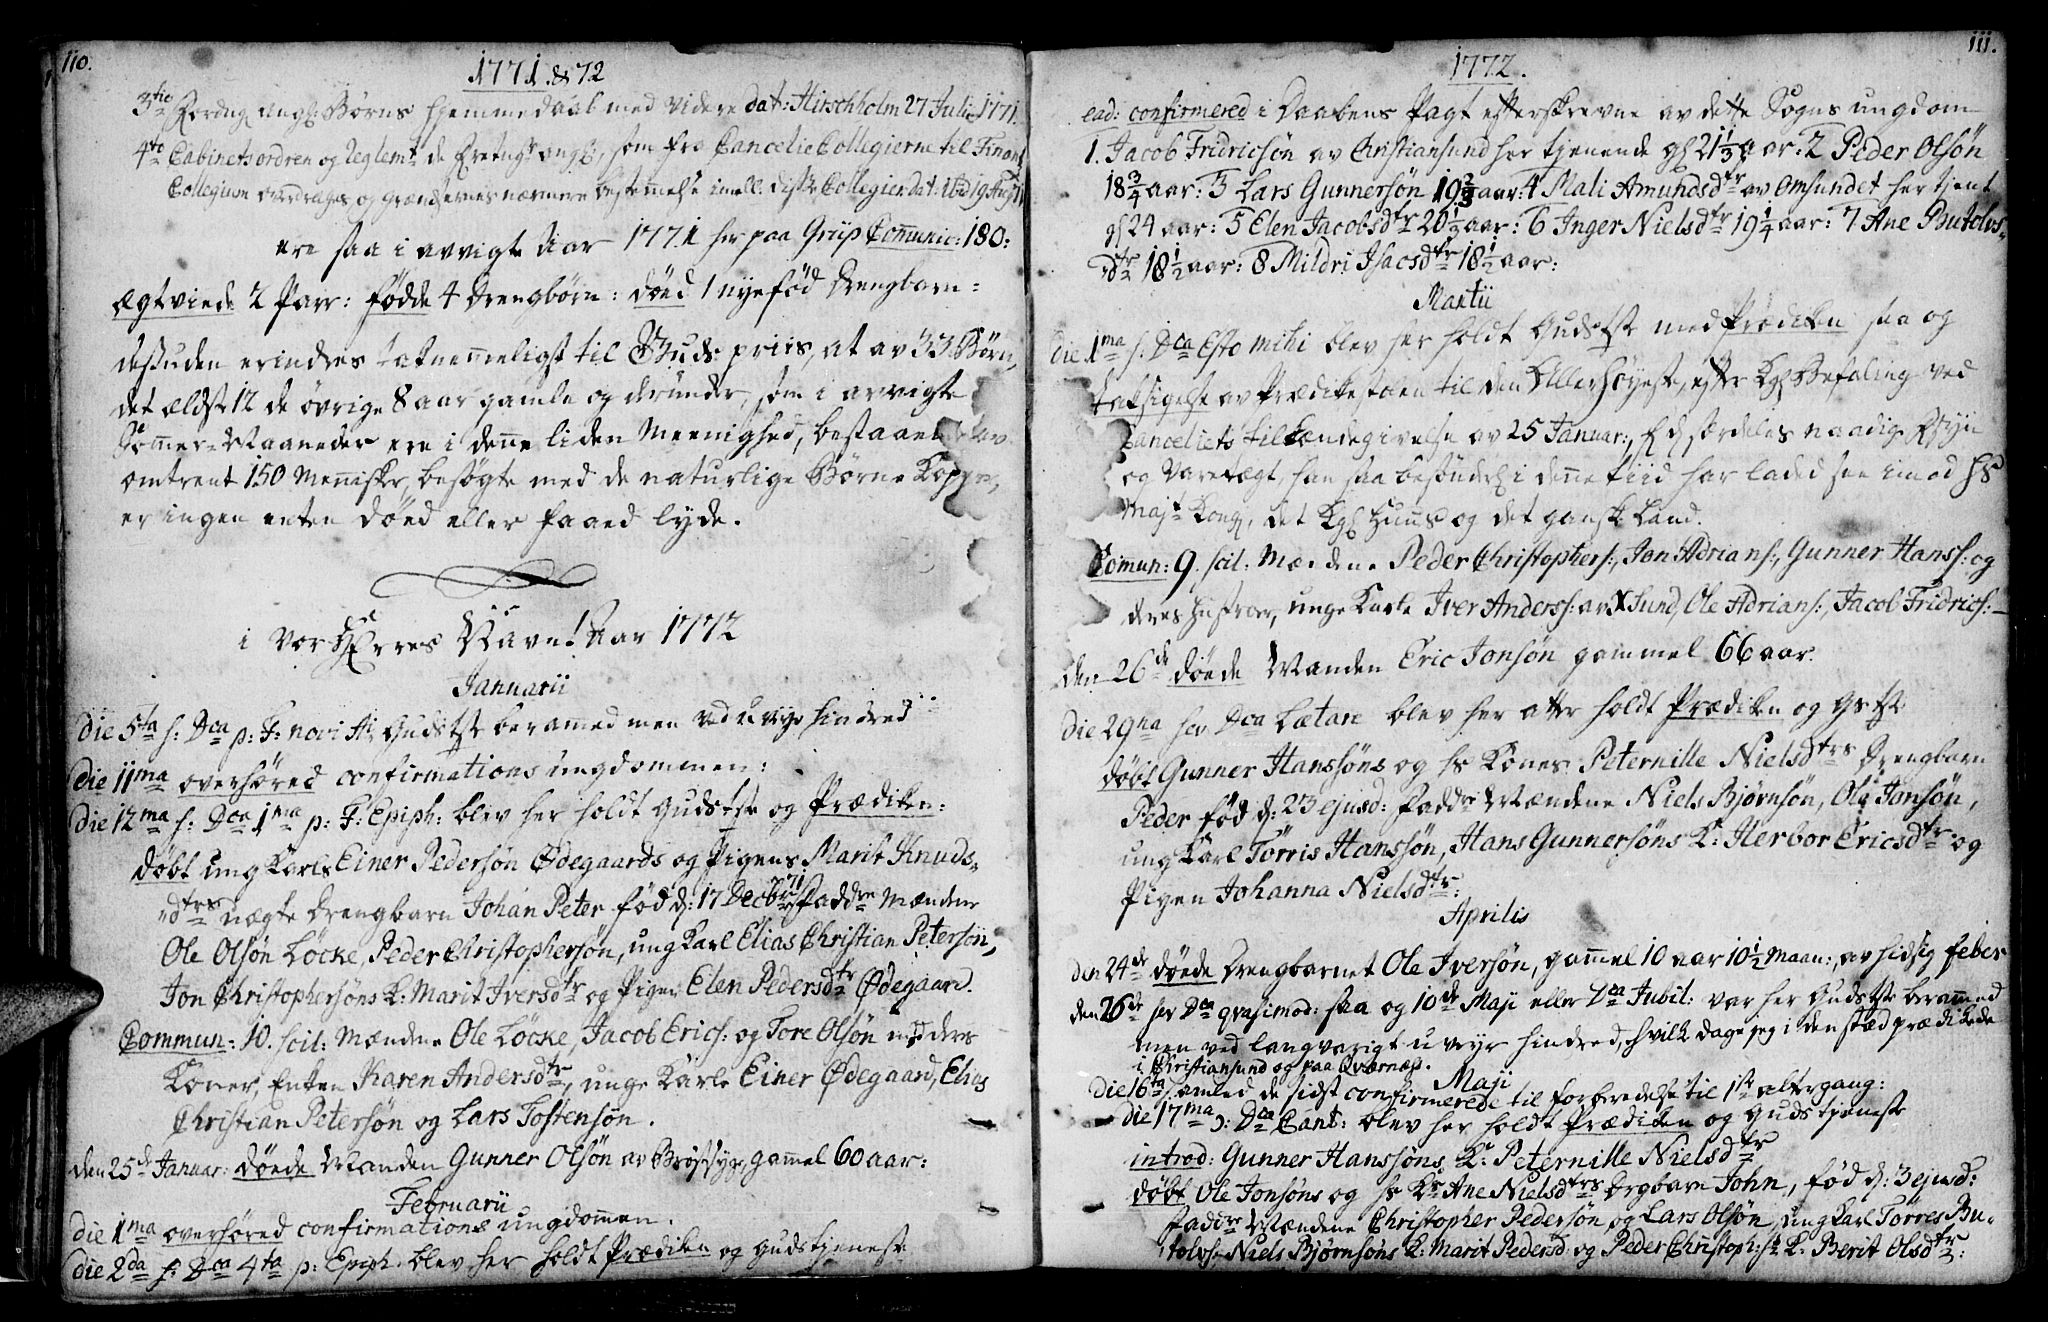 110.
1771. & 72
3tio Forordng ang: Børns hjemmedaab med videre dat: Hirschholm 27 Julii 1771.
4to Cabinetsordren og Reglemt de Eretngr angl, som fra Cancelie Collegierne til Finants
Collegium overdrages og Grændsernes nærmere bestemelse imell. diste Collegier dat: ibid 19 Aug 71
ere saa i avvigte Aar 1771 her paa Grip Comunic: 180:
Ægtviede 2 Parr: fødde 4 Drengbørn: døed 1 nyefød Drengbarn =
desuden erindres taknemeligst til Guds priis, at av 33 Børn,
det ældste 12 de øvrige 8 aar gamle og derunder, som i avvigte
Somer-Maaneder ere i dene liden Meenighed, bestaaende av
omtrent 150 Mennisker, besøgte med de naturlige Børne Kopper,
er ingen enten døed eller faaed lyde.
i Vor HErres Navn! Aar 1772
Januarii
Die 5ta s: Dca p: F. novi Ai Gudstste beramed men ved uveyr hindred
Die 11ma overhøred confirmations ungdommen:
Die 12ma s: Dca 1ma p: F. Epiph: blev her holdt Gudstste og Prædiken:
døbt ung Karls Einer Pedersøn Ødegaards og Pigens Marit Knuds-
dtrs uægte Drengbarn Johan Peter fød d: 17 Decbr 1771 Faddre Mændene
Ole Olsøn Löcke, Peder Christophersøn, ung Karl Elias Christian Petersøn,
Jon Christophersøns K: Marit Iversdtr og Pigen Elen Pedersdtr Ødegaard.
Commun: 10. scil: Mændene Ole Löcke, Jacob Erics: og Tore Olsøn med deres
Koner, Enken Karen Andersdtr, unge Karle Einer Ødegaard, Elias
Christian Petersøn og Lars Tostensøn.
den 25de Januar: døede Manden Gunner Olsøn av Brøstøyr, gamel 60 aar:
Februarii
Die 1ma overhøred confirmations ungdomen.
Die 2da s: Dca 4ta p: Epiph. blev her holdt Prædiken og Gudstjeneste
111.
1772.
ead: confirmered i Daabens Pagt efterskrevne av dette Sogns ungdom
1. Jacob Fridricsøn av Christiansund her tjenende gl 21 1/3 aar: 2 Peder Olsøn
18 3/4 aar: 3 Lars Gunnersøn 19 2/3 aar: 4 Mali Amundsdtr av Omsundet her tjent
gl 24 aar: 5 Elen Jacobsdtr 20 1/2 aar: 6 Inger Nielsdtr 19 1/4 aar: 7 Ane Butolvs-
dtr 18 1/2 aar: 8 Mildri Isacsdtr 18 1/2 aar:
Martii
Die 1ma s: Dca Esto mihi blev her holdt Gudstste med Prædiken saa og
Taksigelse av Prædikestolen til den Allerhøyeste, efter Kgl Befaling ved
Cancelliets tilkændegivelse av 25 Januar:, for særdeles naadig Opsyn
og Varetægt, han saa besönderl i dene tiid har laded see imod Hs
Majt Kongl, det Kgl Huus og det ganske Land.
Comun: 9. scil: Mændene Peder Christophers:, Jon Adrians:, Gunner Hanss: og
deres Hustroer, unge Karle Iver Anderss: av XSund, Ole Adrians:, Jacob Fridrics:
den 26de døede Manden Eric Jonsøn gammel 66 aar.
Die 29na s. Dca Lætare blev her atter holdt Prædiken og Gstste
døbt Gunner Hanssøns og hs Kones Peternille Nielsdtrs Drengbarn
Peder fød d: 23 ejusd: Faddre Mændene Niels Bjørnsøn, Ole Jonsøn,
ung Karl Törris Hanssøn, Hans Gunnersøns K: Herbor Ericsdtr og
Pigen Johanna Nielsdtr:
Aprilis
den 24de døede Drengbarnet Ole Iversøn, gamel 10 aar 10 1/2 Maan:, av hidsig feber
den 26de s. Dca qvasimod: saa og 10de Maji eller Dca Jubil: var her Gudstste beramed
men ved langvarigt uveyr hindred, hvilke dage jeg i den stæd prædikede
i Christiansund og paa Qværnæs.
Maji
Die 16ta samled de sidst confirmerede til forberedelse til 1ste altergang:
die 17ma s: Dca Cant: blev her holdt Prædiken og Gudstjeneste
introd: Gunner Hanssøns K: Peternille Nielsdtr
døbt Ole Jonsöns og hs Ks Ane Nielsdtrs Drgbarn John, fød d: 3 ejusd:
Faddre Mændene Christopher Pedersøn og Lars Olsøn, ung Karl Törres Bu-
tolvs: Niels Bjørnsøns K: Marit Pedersd: og Peder Christoph: s: K: Berit Olsdtr: